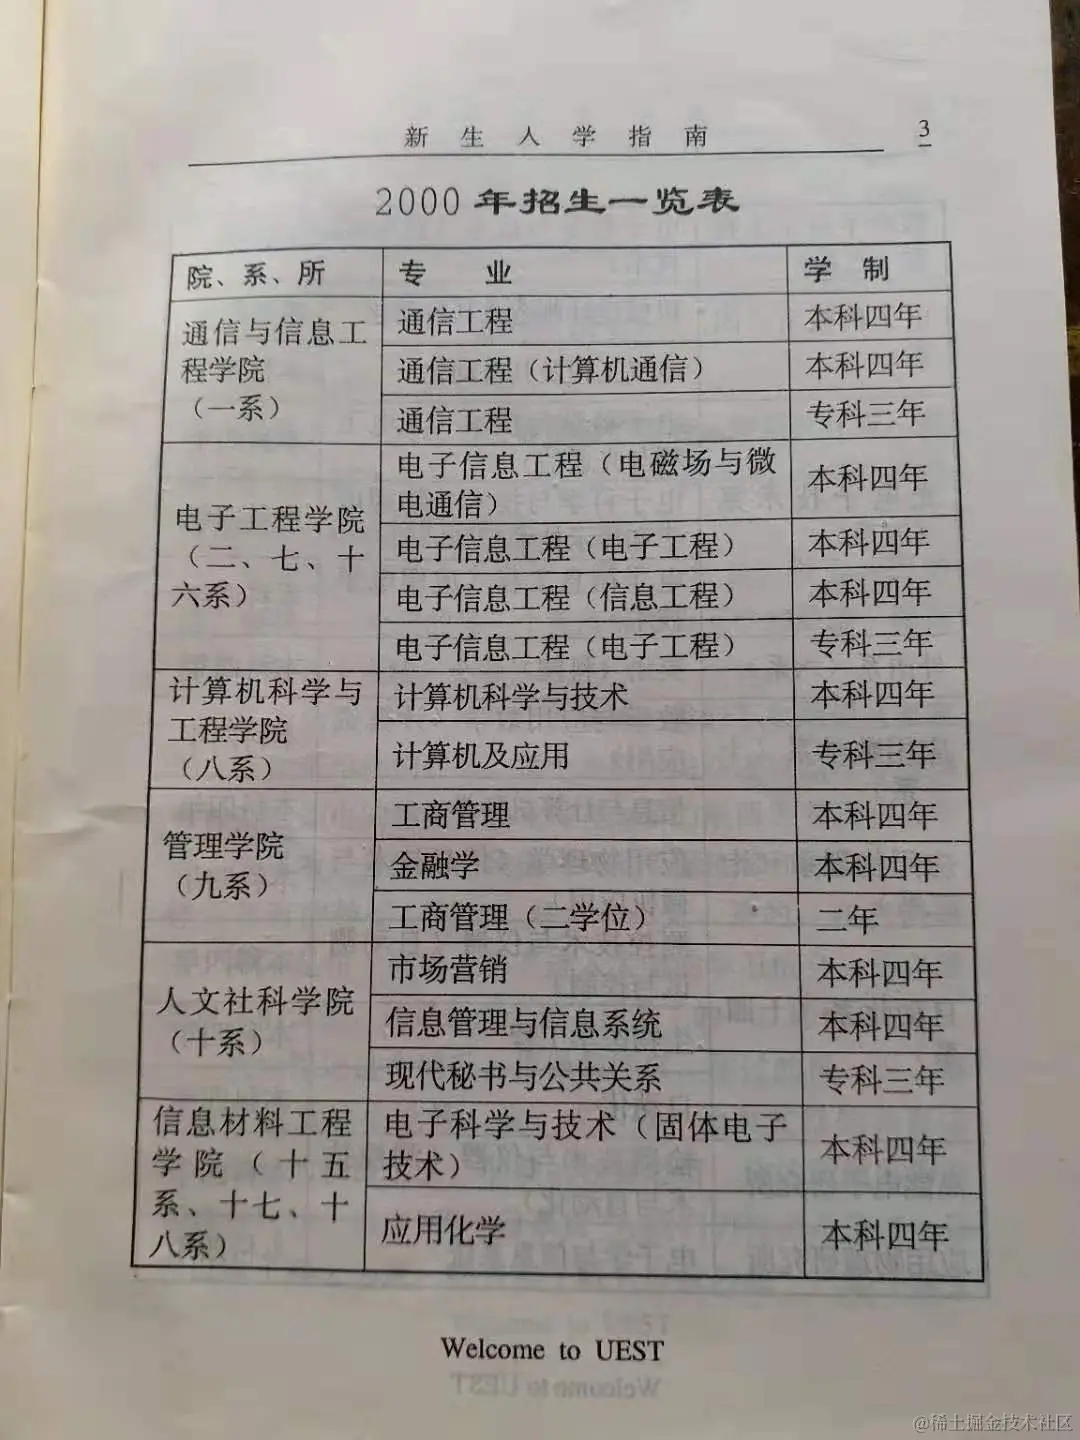 新生入学指南 3
2000年招生一览表
院、系、所 专 业 学 制
通信与信息工
程学院
（一系）
通信工程 本科四年
通信工程（计算机通信） 本科四年
通信工程 专科三年
电子工程学院
（二、七、十
六系）
电子信息工程（电磁场与微
电通信） 本科四年
电子信息工程（电子工程） 本科四年
电子信息工程（信息工程） 本科四年
电子信息工程（电子工程） 专科三年
计算机科学与
工程学院
（八系）
计算机科学与技术 本科四年
计算机及应用 专科三年
管理学院
（九系）
工商管理 本科四年
金融学 本科四年
工商管理（二学位） 二年
人文社科学院
（十系）
市场营销 本科四年
信息管理与信息系统 本科四年
现代秘书与公共关系 专科三年
信息材料工程
学院（十五
系、十七、十
八系）
电子科学与技术（固体电子
技术） 本科四年
应用化学 本科四年
Welcome to UEST
@稀土掘金技术社区